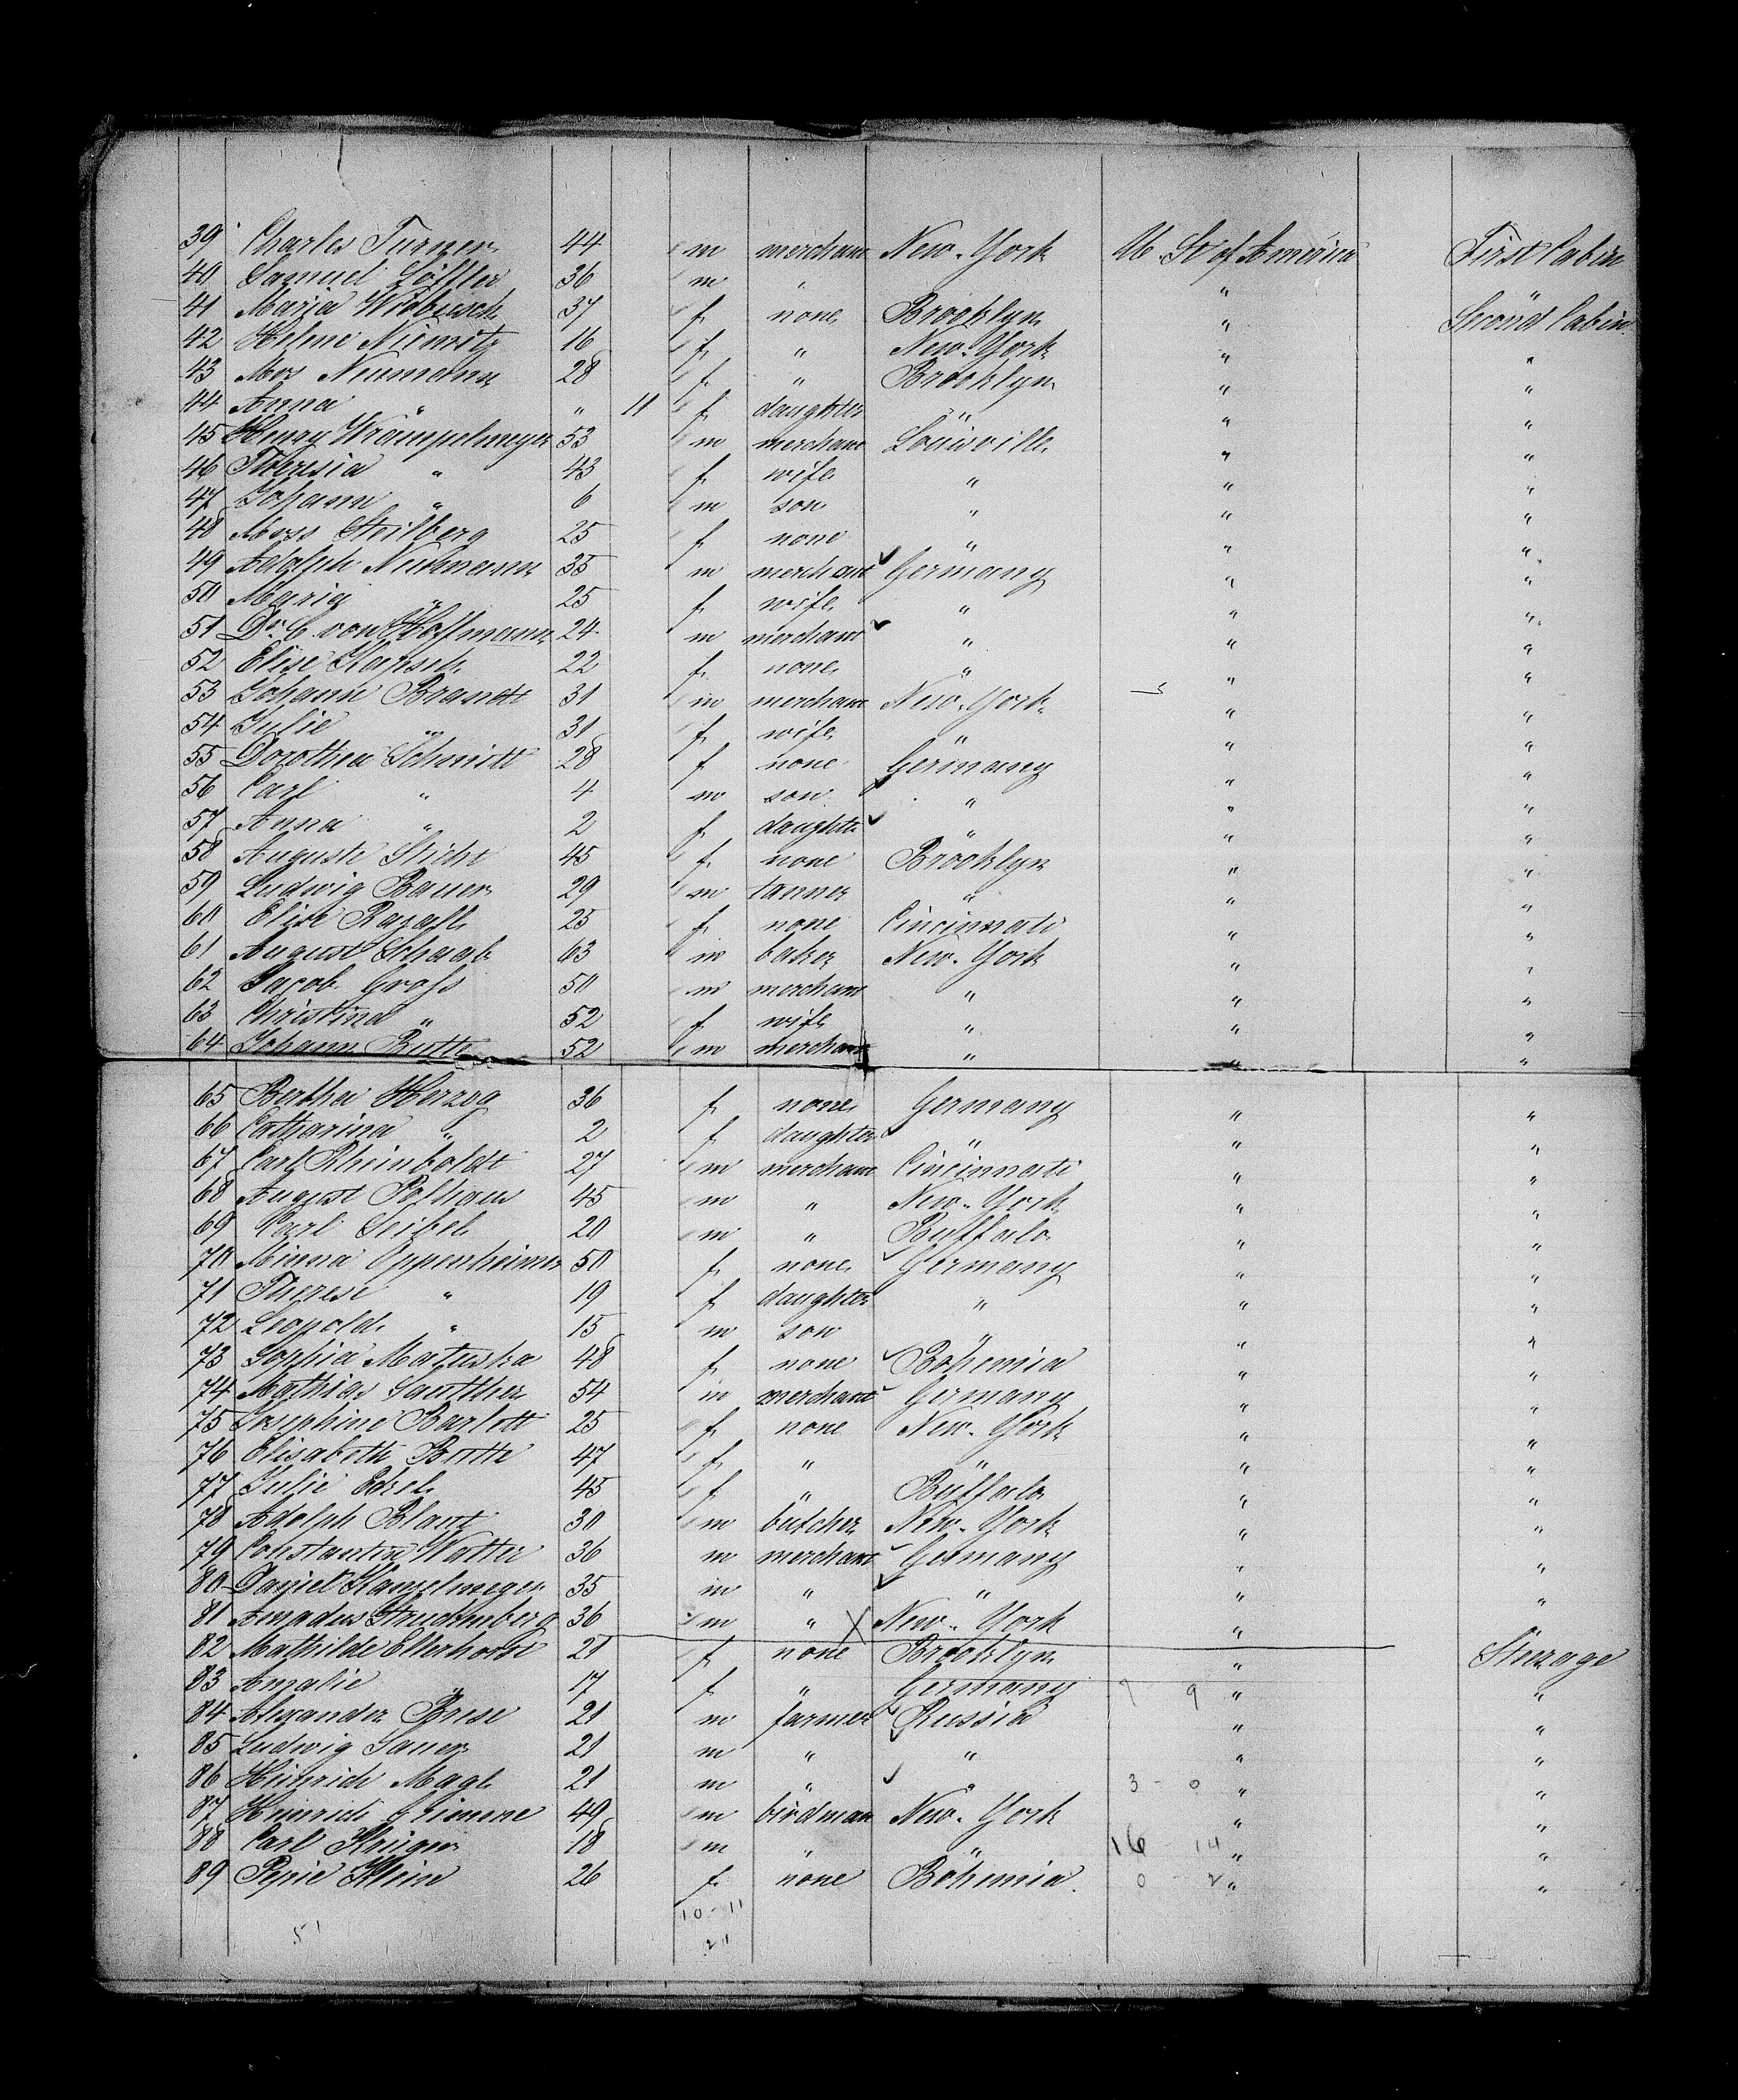 39 Charles Turner 44 m merchant New-York U. St of America First Cabin
40 Samuel Löffler 36 m " " "
41 Maria Wibusch 37 f none Brooklyn " Second Cabin
42 Helene Niemitz 16 f " New-York " "
43 Mrs Neumann 28 f " Brooklyn " "
44 Anna " " 11 f daughter " " "
45 Henry Wrampelmeyer 53 m merchant Louisville " "
46 Theresia " 43 f wife " " "
47 Johann " 6 m son " " "
48 Miss Steilberg 25 f none " " "
49 Adolph Neumann 35 m merchant Germany " "
50 Maria " 25 f wife " " "
51 Dr. C. von Hoffmann 24 m merchant " " "
52 Elise Kapsch 22 f none " " "
53 Johann Brandt 31 m merchant New-York " "
54 Julie " 31 f wife " " "
55 Dorothea Schmidt 28 f none Germany " "
56 Carl " 4 m son " " "
57 Anna " 2 f daughter " " "
58 Auguste Sticht 45 f none Brooklyn " "
59 Ludwig Bauer 29 m tanner " " "
60 Elise 25 f none Cincinnati " "
61 August Schaab 63 m baker New-York " "
62 Jacob Gross 50 m merchant " " "
63 Christina " 52 f wife " " "
64 Johann Butte 52 m merchant " " "
65 Bertha Herzog 36 f none Germany " "
66 Catharina " 2 f daughter " " "
67 Carl Rheinboldt 27 m merchant Cincinnati " "
68 August Posthaus 45 m " New-York " "
69 Carl Seibel 20 m " Buffalo " "
70 Minna Oppenheimer 50 f none Germany " "
71 Therese " 19 f daughter " " "
72 Leopold " 15 m son " " "
73 Sophia Matuska 48 f none Bohemia " "
74 Mathias Sautther 54 m merchant Germany " "
75 Josephine Barlott 25 f none New-York " "
76 Elisabeth Butte 47 f " " " "
77 Julie Edel 45 f " Buffalo " "
78 Adolph Blaut 30 m butcher New-York " "
79 Constantin Walter 36 m merchant Germany " "
80 Daniel Kanzelmeyer 35 m " " " "
81 Amadus Struckmberg 36 m " X New-York "
82 Mathilde Ellerhorst 21 f none Brooklyn " Steerage
83 Amalie " 17 f " Germany 7 9 " "
84 Alexander Brese 21 m farmer Russia " "
85 Ludwig Sauer 21 m " " " "
86 Heinrich Magel 21 m " " 3 - 0 " "
87 Heinrich Grimme 49 m birdman New-York " "
88 Carl Krüger 18 m " " 16 - 14 " "
89 Pepie Klein 26 f none Bohemia 0 - 2 " "
10-11
51 21